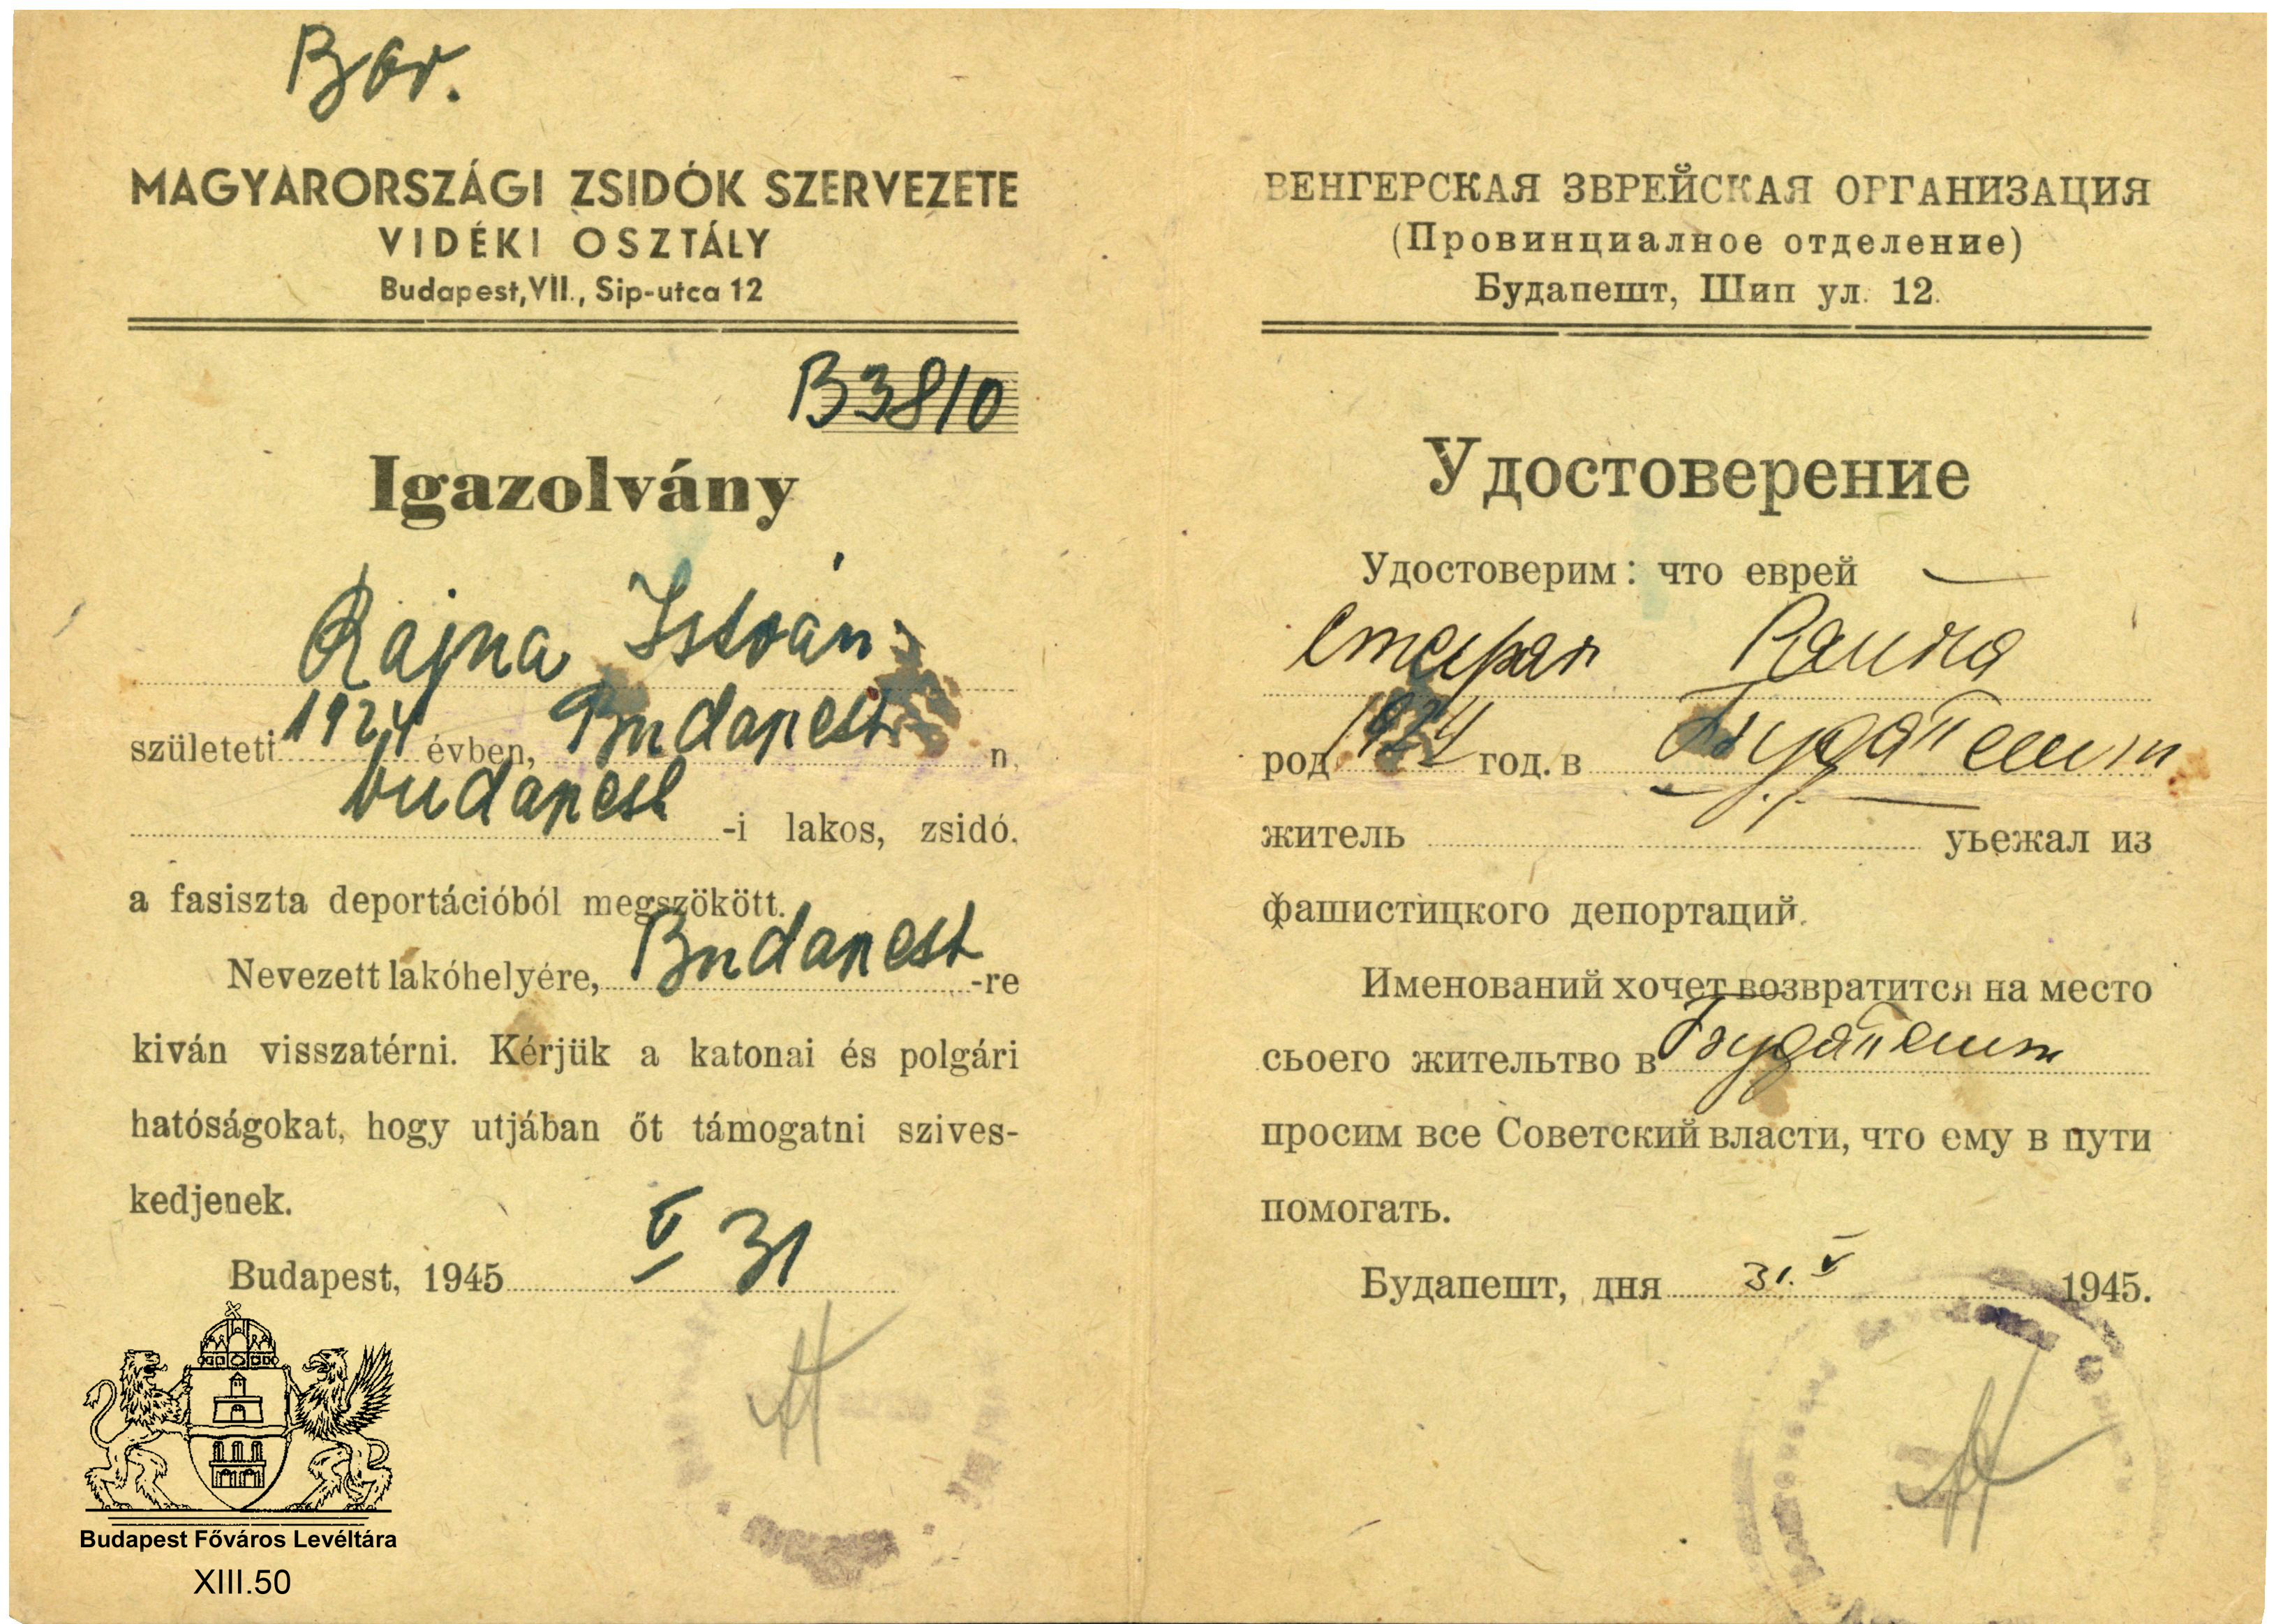 Bor.
MAGYARORSZÁGI ZSIDÓK SZERVEZETE
VIDÉKI OSZTÁLY
Budapest, VII., Sip-utca 12
B3810
Igazolvány
Rajna István
születeti 1924 évben, Budapest n,
budapest -i lakos, zsidó,
a fasiszta deportációból megszökött.
Nevezett lakóhelyére, Budapest -re
kiván visszatérni. Kérjük a katonai és polgári
hatóságokat, hogy utjában őt támogatni szives-
kedjenek.
Budapest, 1945 V 31
Budapest Főváros Levéltára
XIII.50
ВЕНГЕРСКАЯ ЗВРЕЙСКАЯ ОРГАНИЗАЦИЯ
(Провинциалное отделение)
Будапешт, Шип ул. 12.
Удостоверение
Удостоверим: что еврей
Раина
род 1924 год. в Будапешт
житель уьежал из
фашистицкого депортаций.
Именований хочет возвратится на место
сьоего жительтво в Будапешт
просим все Советский власти, что ему в пути
помогать.
Будапешт, дня 31. V 1945.